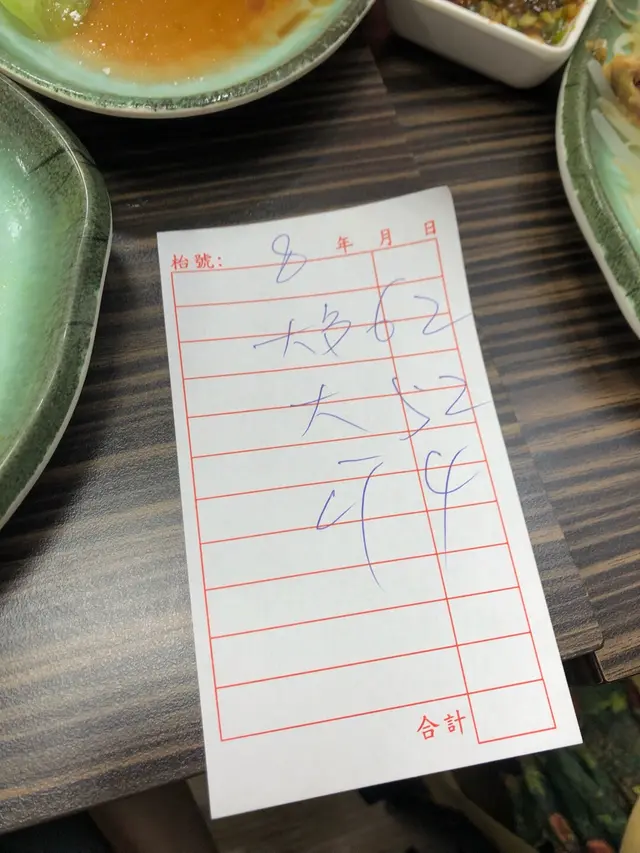 枱號: 8 年 月 日
大多 62
大 52
可 4
合計